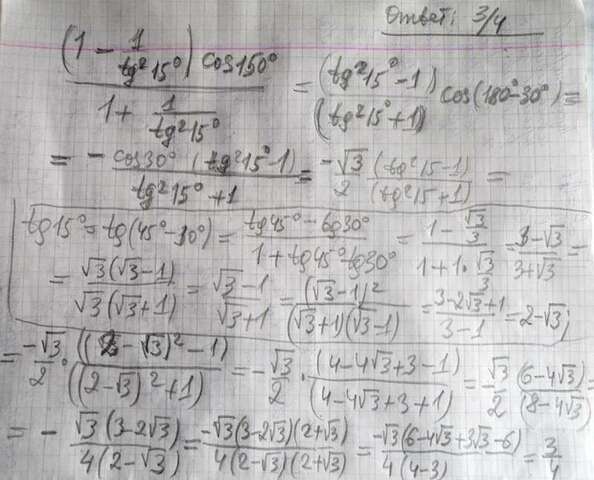 Ответ: 3/4
(1 - 1/tg²15°) cos150° / (1 + 1/tg²15°) = (tg²15° - 1)/(tg²15° + 1) cos(180° - 30°) =
= - cos30° (tg²15° - 1) / (tg²15° + 1) = -√3/2 (tg²15 - 1)/(tg²15 + 1) =
tg15° = tg(45° - 30°) = (tg45° - tg30°)/(1 + tg45° tg30°) = (1 - √3/3)/(1 + 1·√3/3) = (3 - √3)/(3 + √3) =
= √3(√3 - 1)/(√3(√3 + 1)) = (√3 - 1)/(√3 + 1) = (√3 - 1)²/((√3 + 1)(√3 - 1)) = (3 - 2√3 + 1)/(3 - 1) = 2 - √3;
= -√3/2 · ((2 - √3)² - 1)/((2 - √3)² + 1) = -√3/2 · (4 - 4√3 + 3 - 1)/(4 - 4√3 + 3 + 1) = -√3/2 (6 - 4√3)/(8 - 4√3) =
= - √3(3 - 2√3)/(4(2 - √3)) = -√3(3 - 2√3)(2 + √3)/(4(2 - √3)(2 + √3)) = -√3(6 - 4√3 + 3√3 - 6)/(4(4 - 3)) = 3/4